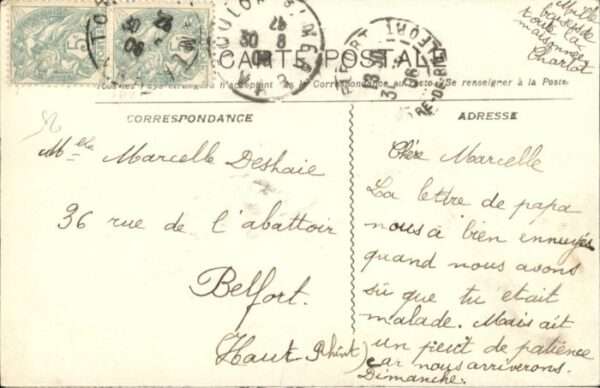 Mille
baisers de
toute la
maisonnée
Charlot
CARTE POSTALE
Tous les Pays étrangers n'acceptent pas la Correspondance au recto. Se renseigner à la Poste.
CORRESPONDANCE
ADRESSE
Melle Marcelle Deshaie
36 rue de l'abattoir
Belfort.
Haut Rhin)
Chère Marcelle
La lettre de papa
nous à bien ennuyés
quand nous avons
sû que tu était
malade. Mais ait
un peut de patience
car nous arriverons.
Dimanche.